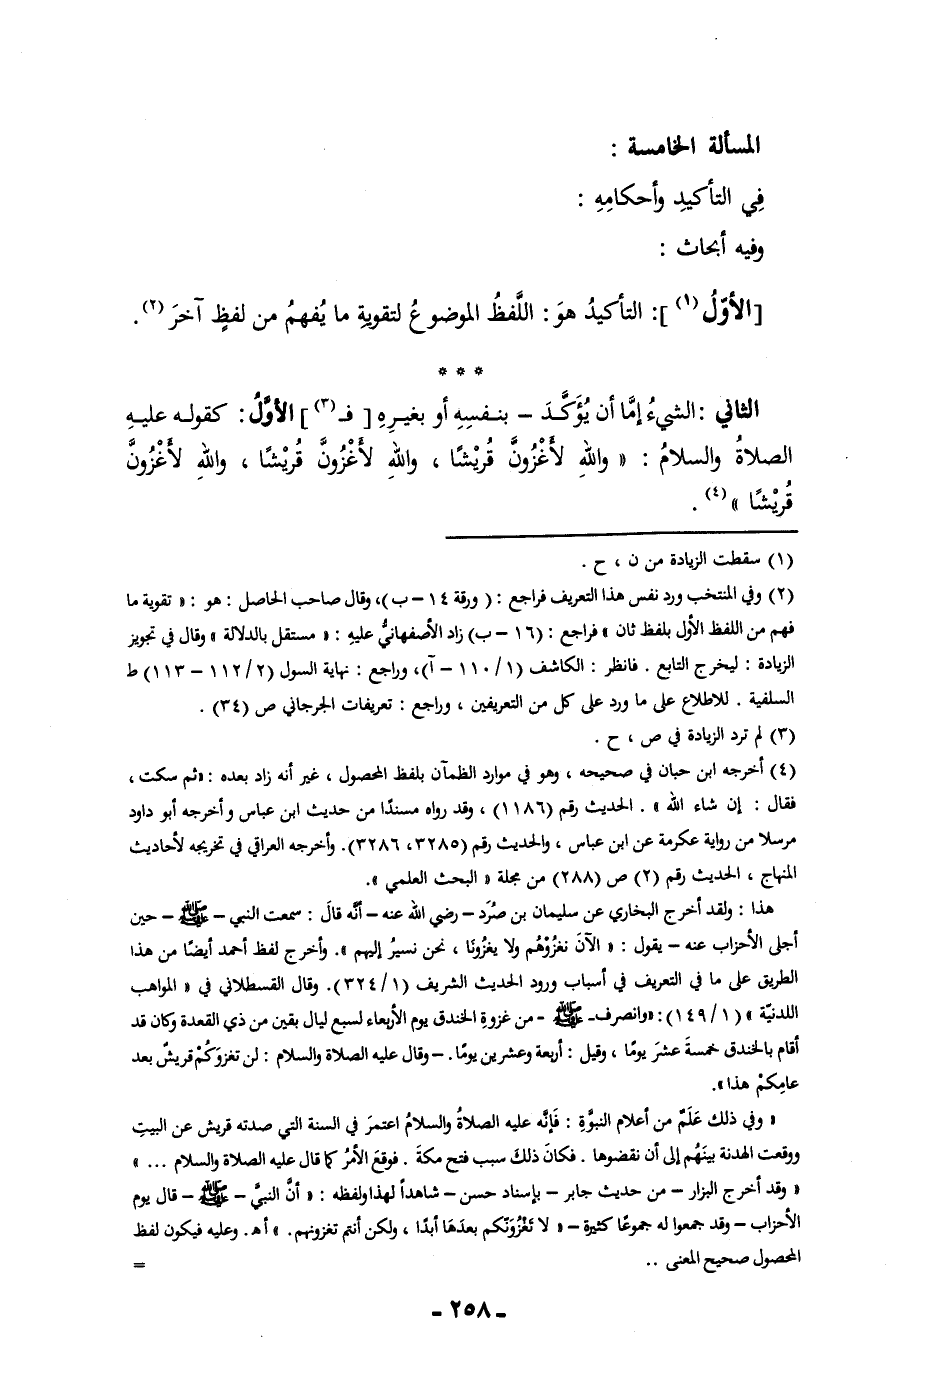 المسألة الخامسة :
فِي التأكيدِ وأحكامِهِ :
وفيه أبحاث :
[الأوّلُ (١) ]: التأكيدُ هوَ : اللَّفظُ الموضوعُ لتقويةِ ما يُفهمُ من لفظٍ آخرَ (٢).
* * *
الثاني : الشيءُ إمَّا أن يُؤَكَّدَ – بنفسِهِ أو بغيرِهِ [ فـ (٣) ] الأوَّلُ : كقوله عليهِ
الصلاةُ والسلامُ : « واللهِ لأَغْزُونَّ قُريْشًا ، واللهِ لأَغْزُونَّ قُريْشًا ، واللهِ لأَغْزُونَّ
قُريْشًا » (٤) .
(١) سقطت الزيادة من ن ، ح .
(٢) وفي المنتخب ورد نفس هذا التعريف فراجع : ( ورقة ١٤ – ب)، وقال صاحب الحاصل : هو : « تقوية ما
فهم من اللفظ الأول بلفظ ثان » فراجع : (١٦ – ب) زاد الأصفهانيُّ عليهِ : « مستقل بالدلالة » وقال في تجويز
الزيادة : ليخرج التابع . فانظر : الكاشف (١/ ١١٠ – آ)، وراجع : نهاية السول (٢/ ١١٢ – ١١٣) ط
السلفية . للاطلاع على ما ورد على كل من التعريفين ، وراجع : تعريفات الجرجاني ص (٣٤) .
(٣) لم ترد الزيادة في ص ، ح .
(٤) أخرجه ابن حبان في صحيحه ، وهو في موارد الظمآن بلفظ المحصول ، غير أنه زاد بعده : «ثم سكت ،
فقال : إن شاء الله » . الحديث رقم (١١٨٦) ، وقد رواه مسندًا من حديث ابن عباس وأخرجه أبو داود
مرسلا من رواية عكرمة عن ابن عباس ، والحديث رقم (٣٢٨٥، ٣٢٨٦). وأخرجه العراقي في تخريجه لأحاديث
المنهاج ، الحديث رقم (٢) ص (٢٨٨) من مجلة « البحث العلمي ».
هذا : ولقد أخرج البخاري عن سليمان بن صُرَد – رضي الله عنه – أنَّه قالَ : سمعت النبي – ﷺ – حين
أجلى الأحزاب عنه – يقول : « الآنَ نغزُوْهُم ولا يغزُونَا ، نحن نسيرُ إليهم ». وأخرج لفظ أحمد أيضًا من هذا
الطريق على ما في التعريف في أسباب ورود الحديث الشريف (١ /٣٢٤). وقال القسطلاني في « المواهب
اللدنيّة » (١ /١٤٩): «وانصرف – ﷺ – من غزوةِ الخندق يوم الأربعاء لسبع ليال بقين من ذي القعدة وكان قد
أقام بالخندق خمسةَ عشرَ يومًا ، وقيل : أربعة وعشرين يومًا. – وقال عليه الصلاة والسلام : لن تغزوَكُمْ قريشٌ بعد
عامِكمْ هذا ».
« وفي ذلك عَلَمٌ من أعلام النبوَّةِ : فَإنَّه عليه الصلاةُ والسلامُ اعتمرَ في السنة التي صدته قريش عن البيتِ
ووقعت الهدنة بينَهُم إلى أن نقضوها . فكانَ ذلكَ سبب فتح مكةَ . فوقعَ الأمرُ كما قال عليه الصلاة والسلام ... »
« وقد أخرج البزار – من حديث جابر – بإسناد حسن – شاهداً لهذا ولفظه : « أنَّ النبيَّ – ﷺ – قال يوم
الأحزاب – وقد جمعوا له جموعًا كثيرة – « لا تَغْزُوَنّكم بعدَهَا أبدًا ، ولكن أنتم تغزونهم. » أهـ. وعليه فيكون لفظ
المحصول صحيح المعنى .. =
ـ ٢٥٨ ـ